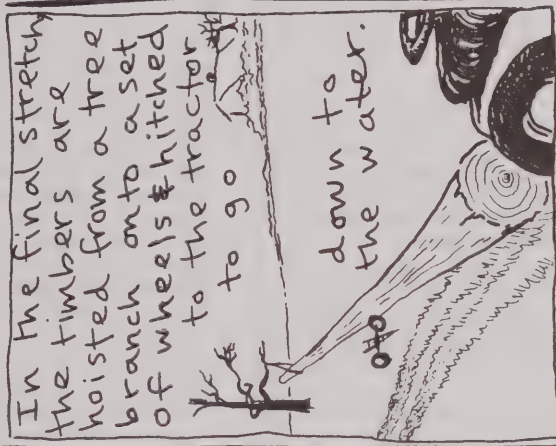 In the final stretch,
the timbers are
hoisted from a tree
branch onto a set
of wheels & hitched
to the tractor
to go
down to
the water.